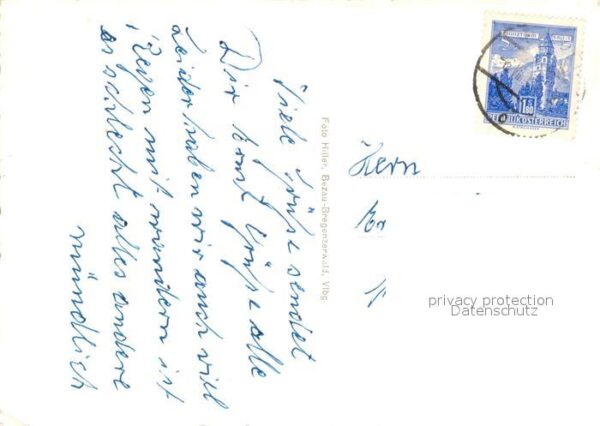 Viele Grüße sendet
Dir Ernst Grüße alle
Leider haben wir auch viel
Regen mit wandern ist
es schlecht alles andere
mündlich
Foto Hiller, Bezau-Bregenzerwald, Vlbg.
Herrn
REPUBLIK ÖSTERREICH
1.80
privacy protection
Datenschutz